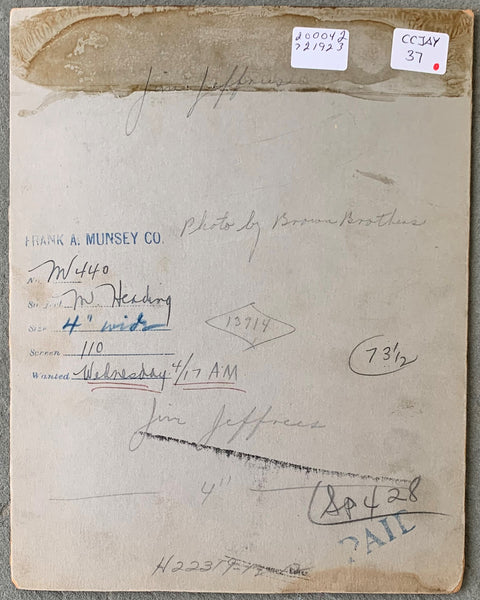 200042
721923
CCJAY
37
Jim Jeffries
Photo by Brown Brothers
FRANK A. MUNSEY CO.
No. M440
Subject M Heading
Size 4" wide
13914
Screen 110
73 1/2
Wanted Wednesday 4/17 AM
Jim Jeffries
4"
Sp 428
PAID
H22319